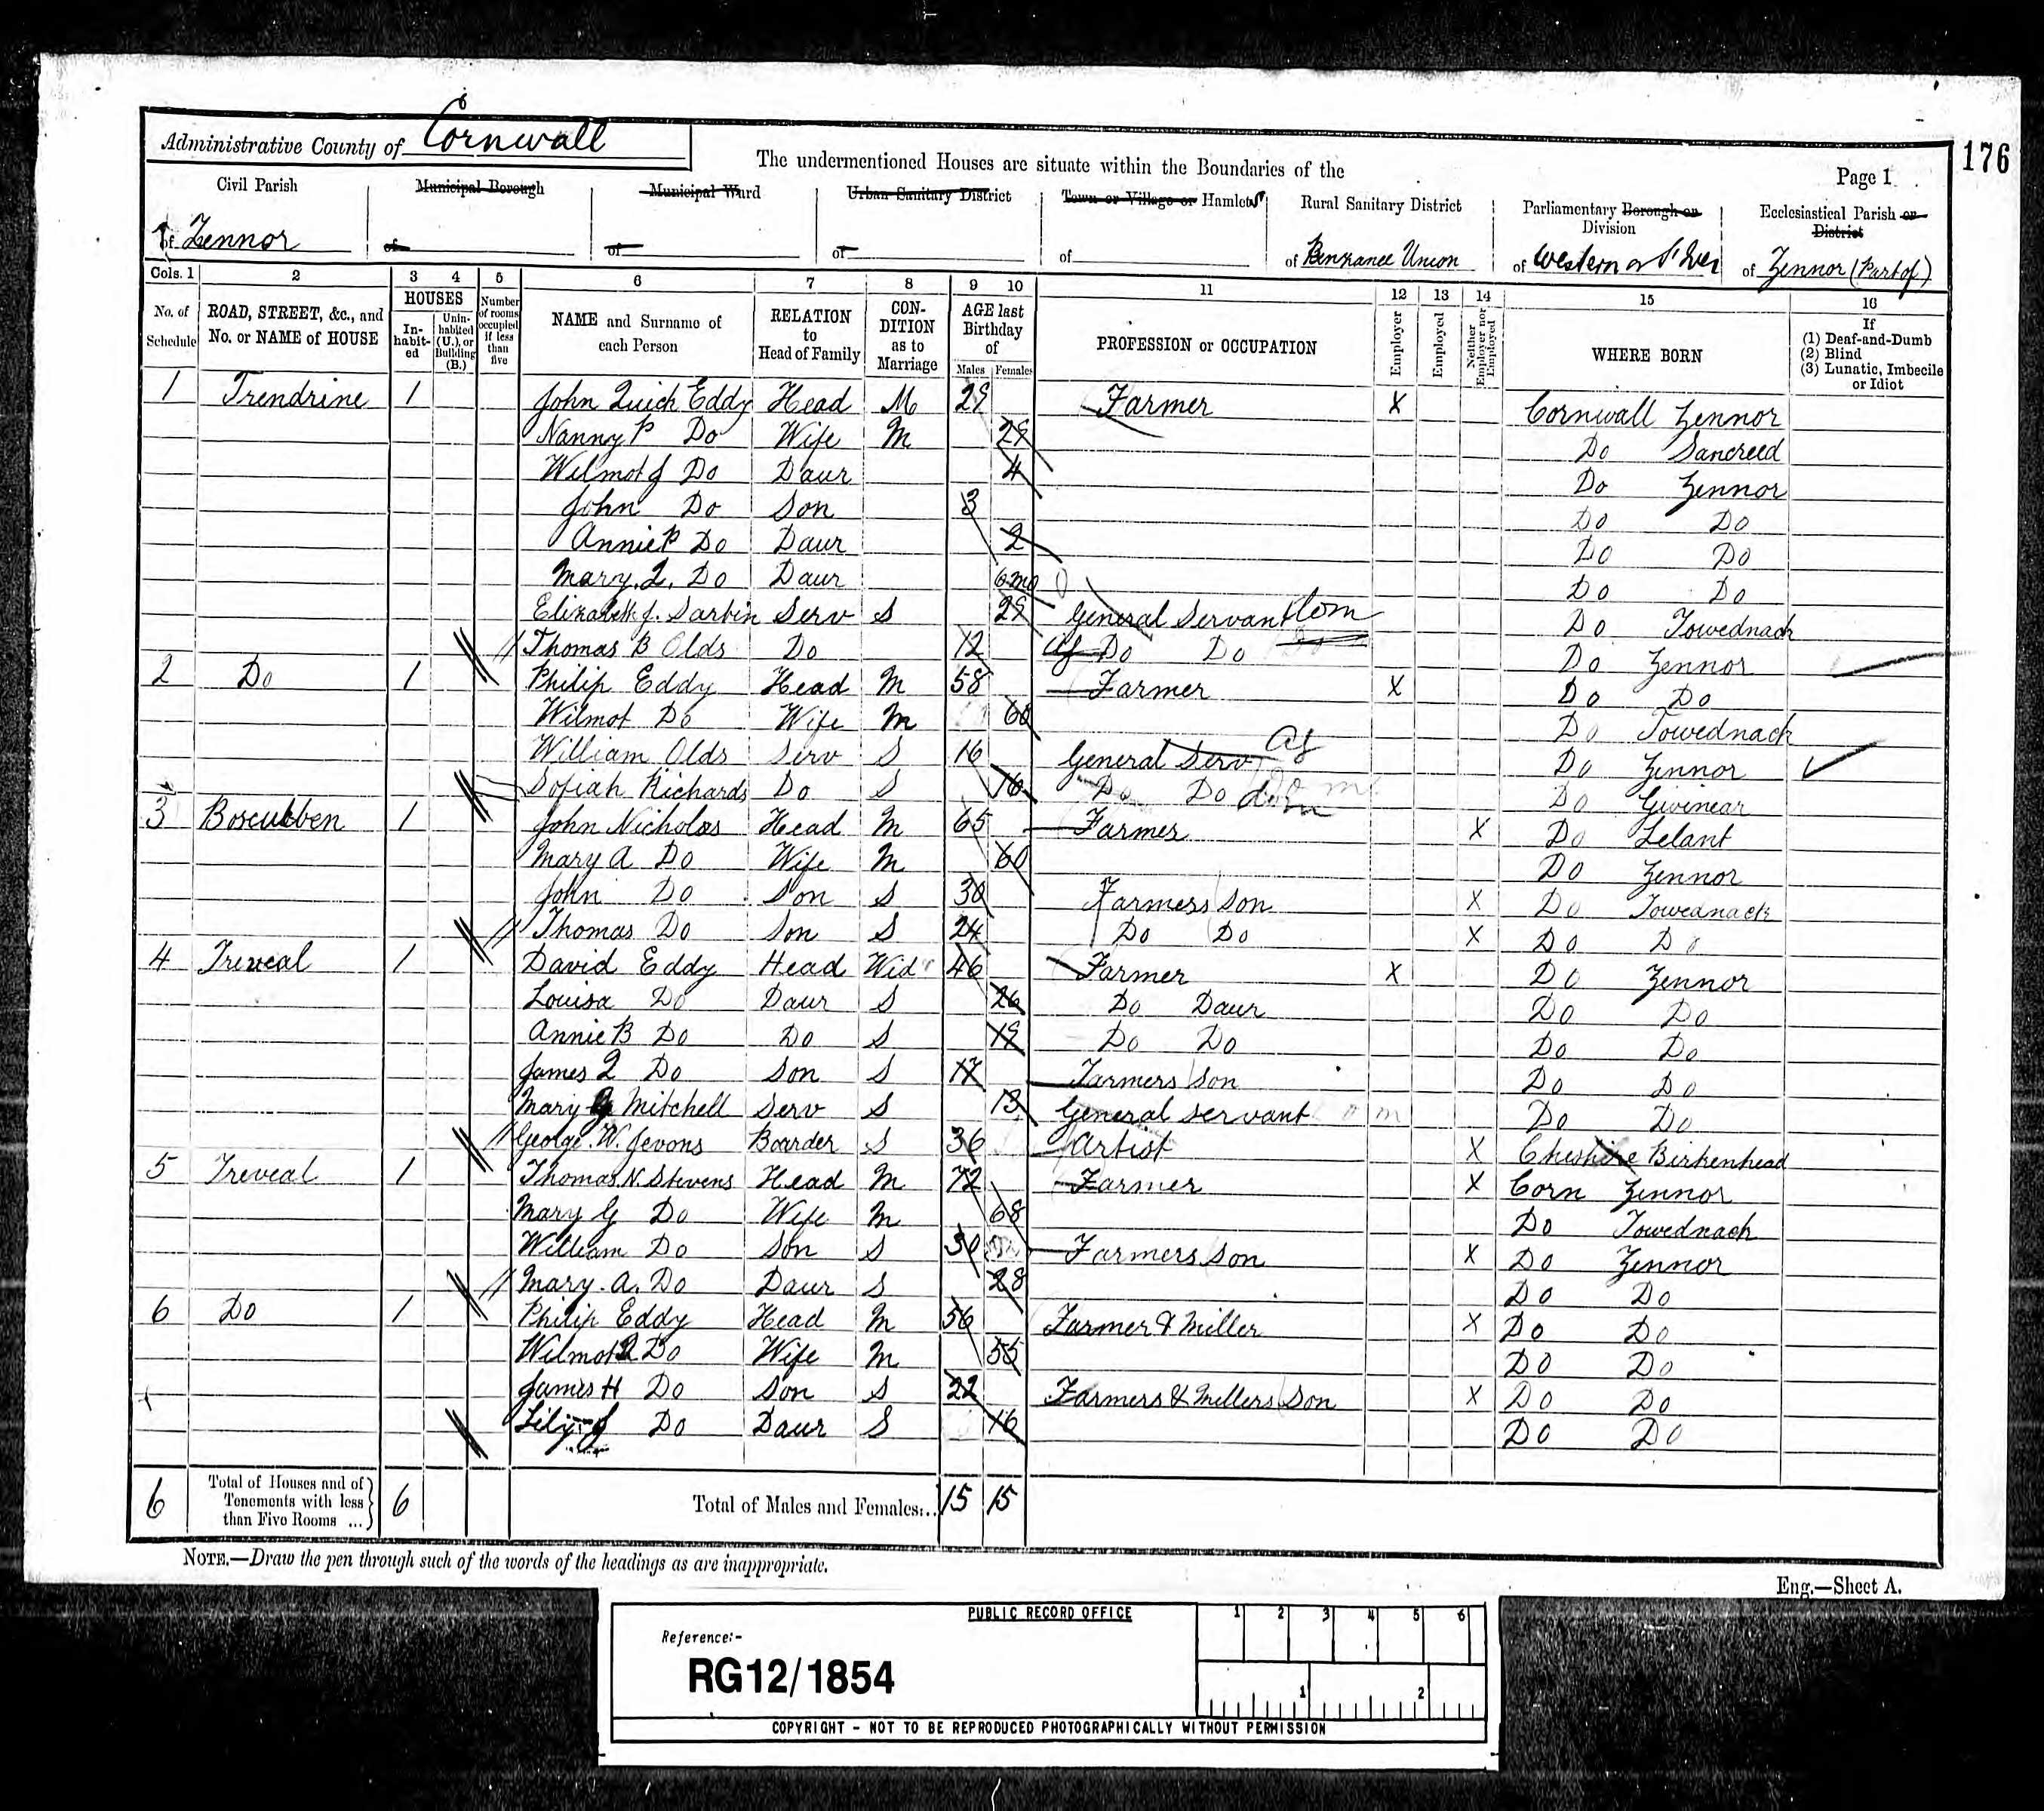 Administrative County of Cornwall
The undermentioned Houses are situate within the Boundaries of the
Page 1
176
Civil Parish
Municipal Borough
Municipal Ward
Urban Sanitary District
Town or Village or Hamlet
Rural Sanitary District
Parliamentary Borough or Division
Ecclesiastical Parish or District
of Zennor
of
of
of
of
of Penzance Union
of Western or St Ives
of Zennor (Part of)
Cols. 1 2 3 4 5 6 7 8 9 10 11 12 13 14 15 16
No. of Schedule
ROAD, STREET, &c., and No. or NAME of HOUSE
HOUSES
Inhabited
Uninhabited (U.), or Building (B.)
Number of rooms occupied if less than five
NAME and Surname of each Person
RELATION to Head of Family
CONDITION as to Marriage
AGE last Birthday of
Males Females
PROFESSION or OCCUPATION
Employer
Employed
Neither Employer nor Employed
WHERE BORN
If
(1) Deaf-and-Dumb
(2) Blind
(3) Lunatic, Imbecile or Idiot
1 Trendrine 1 John Quick Eddy Head M 29 Farmer X Cornwall Zennor
Nanny P Do Wife M 29 Do Sancreed
Wilmot J Do Daur 4 Do Zennor
John Do Son 3 Do Do
Annie P Do Daur 2 Do Do
Mary. Q. Do Daur 6mo Do Do
Elizabeth J. Serv S 29 General Servant Dom Do Towednack
Thomas B Olds Do 12 Ag Do Do Do Zennor
2 Do 1 Philip Eddy Head M 58 Farmer X Do Do
Wilmot Do Wife M 60 Do Towednack
William Olds Serv S 16 General Serv Ag Do Zennor
Sofiah Richards Do S 16 Do Do dom Do Gwinear
3 Boscubben 1 John Nicholas Head M 65 Farmer X Do Lelant
Mary A Do Wife M 60 Do Zennor
John Do Son S 30 Farmers Son X Do Towednack
Thomas Do Son S 24 Do Do X Do Do
4 Treveal 1 David Eddy Head Widr 46 Farmer X Do Zennor
Louisa Do Daur S 26 Do Daur Do Do
Annie B Do Do S 19 Do Do Do Do
James Q Do Son S 17 Farmers Son Do Do
Mary Mitchell Serv S 13 General servant Do Do
George. W. Jevons Boarder S 36 Artist X Cheshire Birkenhead
5 Treveal 1 Thomas N. Stevens Head M 72 Farmer X Corn Zennor
Mary G Do Wife M 68 Do Towednack
William Do Son S 30 Farmers Son X Do Zennor
Mary. A. Do Daur S 28 Do Do
6 Do 1 Philip Eddy Head M 56 Farmer & Miller X Do Do
Wilmot Q Do Wife M 55 Do Do
James H Do Son S 22 Farmers & Millers Son X Do Do
Lily J Do Daur S 16 Do Do
6 Total of Houses and of Tenements with less than Five Rooms ... 6 Total of Males and Females... 15 15
NOTE.—Draw the pen through such of the words of the headings as are inappropriate.
Eng.—Sheet A.
PUBLIC RECORD OFFICE
1 2 3 4 5 6
Reference:-
RG12/1854
1 2
COPYRIGHT - NOT TO BE REPRODUCED PHOTOGRAPHICALLY WITHOUT PERMISSION